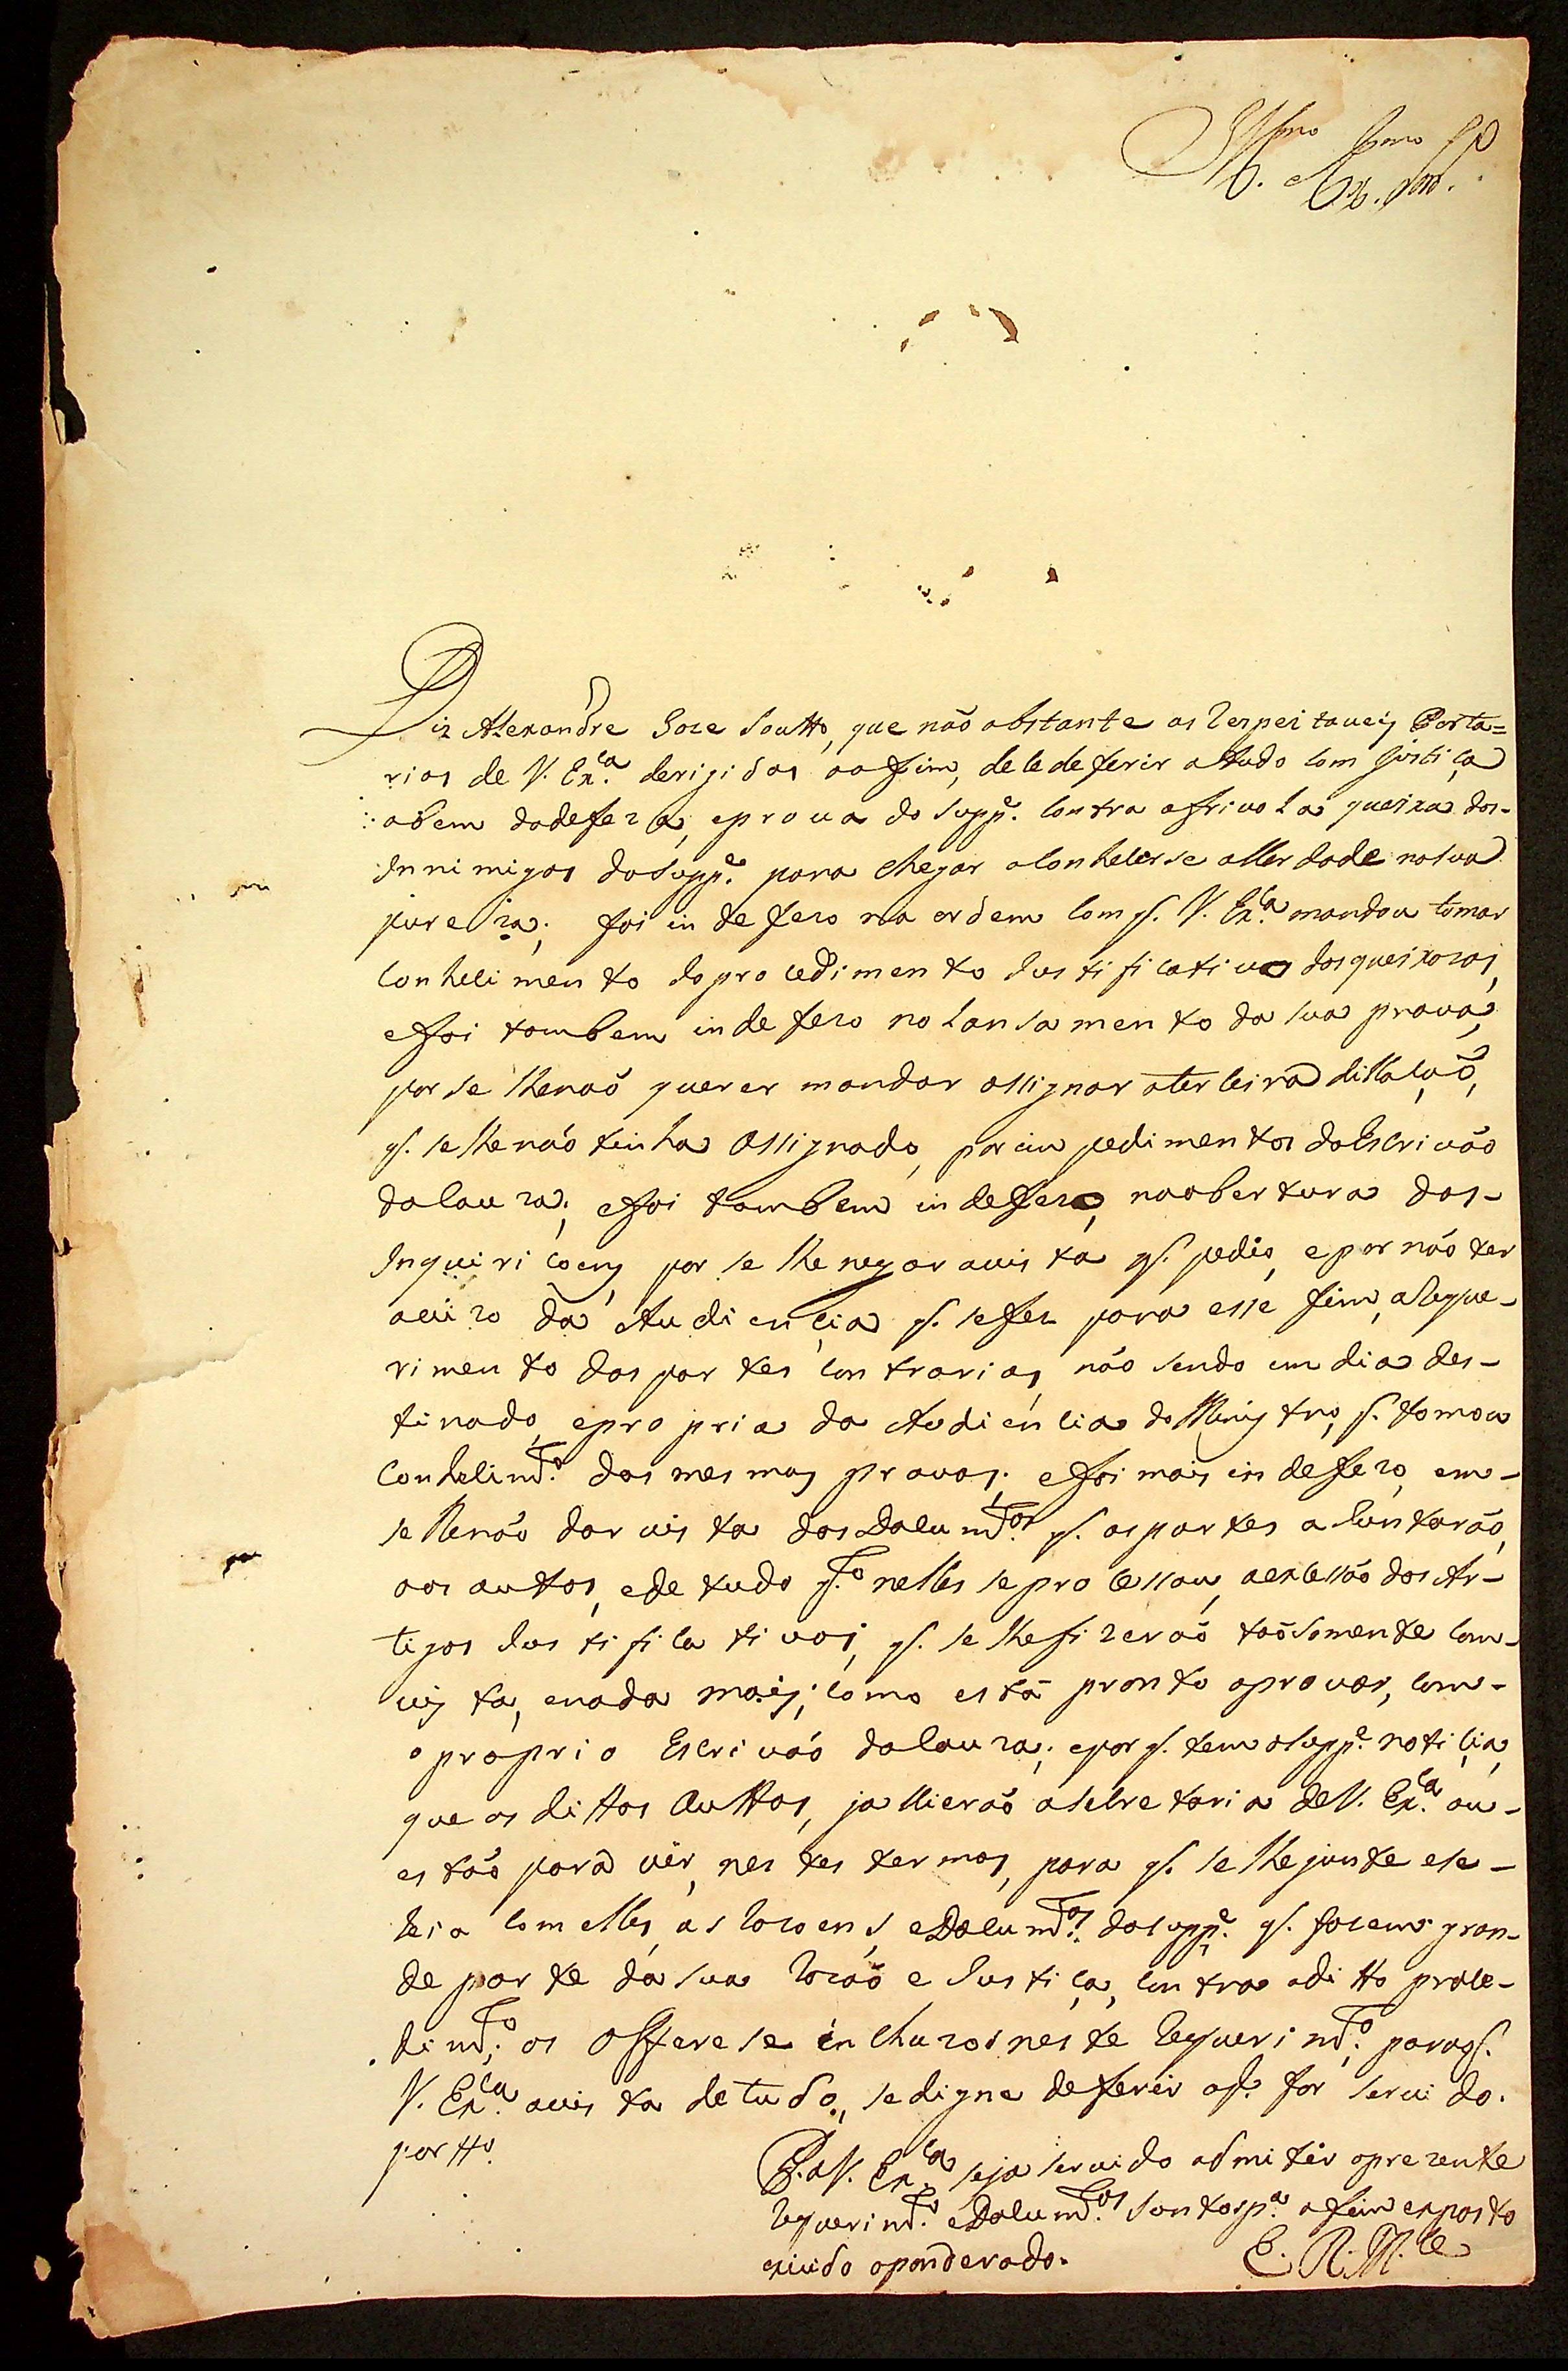 Ill.mo Ex.mo Snr.
Diz Alexandre Joze Soutto, que não obstante as respeitaveis Porta=
rias de V. Ex.ca derigidas aofim, dele deferir atudo com justiça
abem dadefeza, eprova do supp.e contra afrivola queixa dos-
Innimigos dosupp.e para chegar aconhecerse averdade nasua
pureza; foi indefezo na ordem com q. V. Ex.ca mandou tomar
conhecimento doprocedimento Justificativo dosqueixozos,
efoi tambem indefezo no lansamento da sua prova,
por se lhenaõ querer mandar assignar aterceira dillaçaõ,
q. selhenaõ tinha assignado, por impedimentos doEscrivão
dacauza; efoi tambem indefezo, naabertura das-
Inquiriçoens, por se lhe negar avista q. pedio, epor não ter
avizo da Audiençia q. sefez para esse fim, areque-
rimento das partes contrarias, não sendo em dia des-
tinado, epropria da Audiencia do Ministro, q. tomou
conhecim.to das mesmas provas; efoi mais indefezo, em-
selhenaõ dar vista dosDocum.tos q. aspartes aJuntarão,
aos auttos, ede tudo q.to nelles seprocessou, aexcessão dos Ar-
tigos Justificativos, q. se lhefizeraõ taõsomente com-
vista, enada mais; como está pronto aprovar, com-
o proprio Escrivão dacauza; epor q. tem osupp.e notiçia,
que os dittos Auttos, ja vieraõ aSecretaria deV. Ex.ca ou-
estão para vir, nestes termos, para q. se lhe junte ese-
veia com elles, as razoens, eDocum.tos dosupp.e q. fazem gran-
de parte da sua razaõ e Justiça, contra oditto proce-
dim.to; os offerese incluzos neste requerim.to; paraq.
V. Ex.ca avista detudo, sedigne deferir oq. for servido.
por tto
P. aV. Ex.ca seja servido admitir oprezente
requerim.to eDocum.tos Juntos p.a ofim exposto
evisto oponderado.
E. R. M.ce